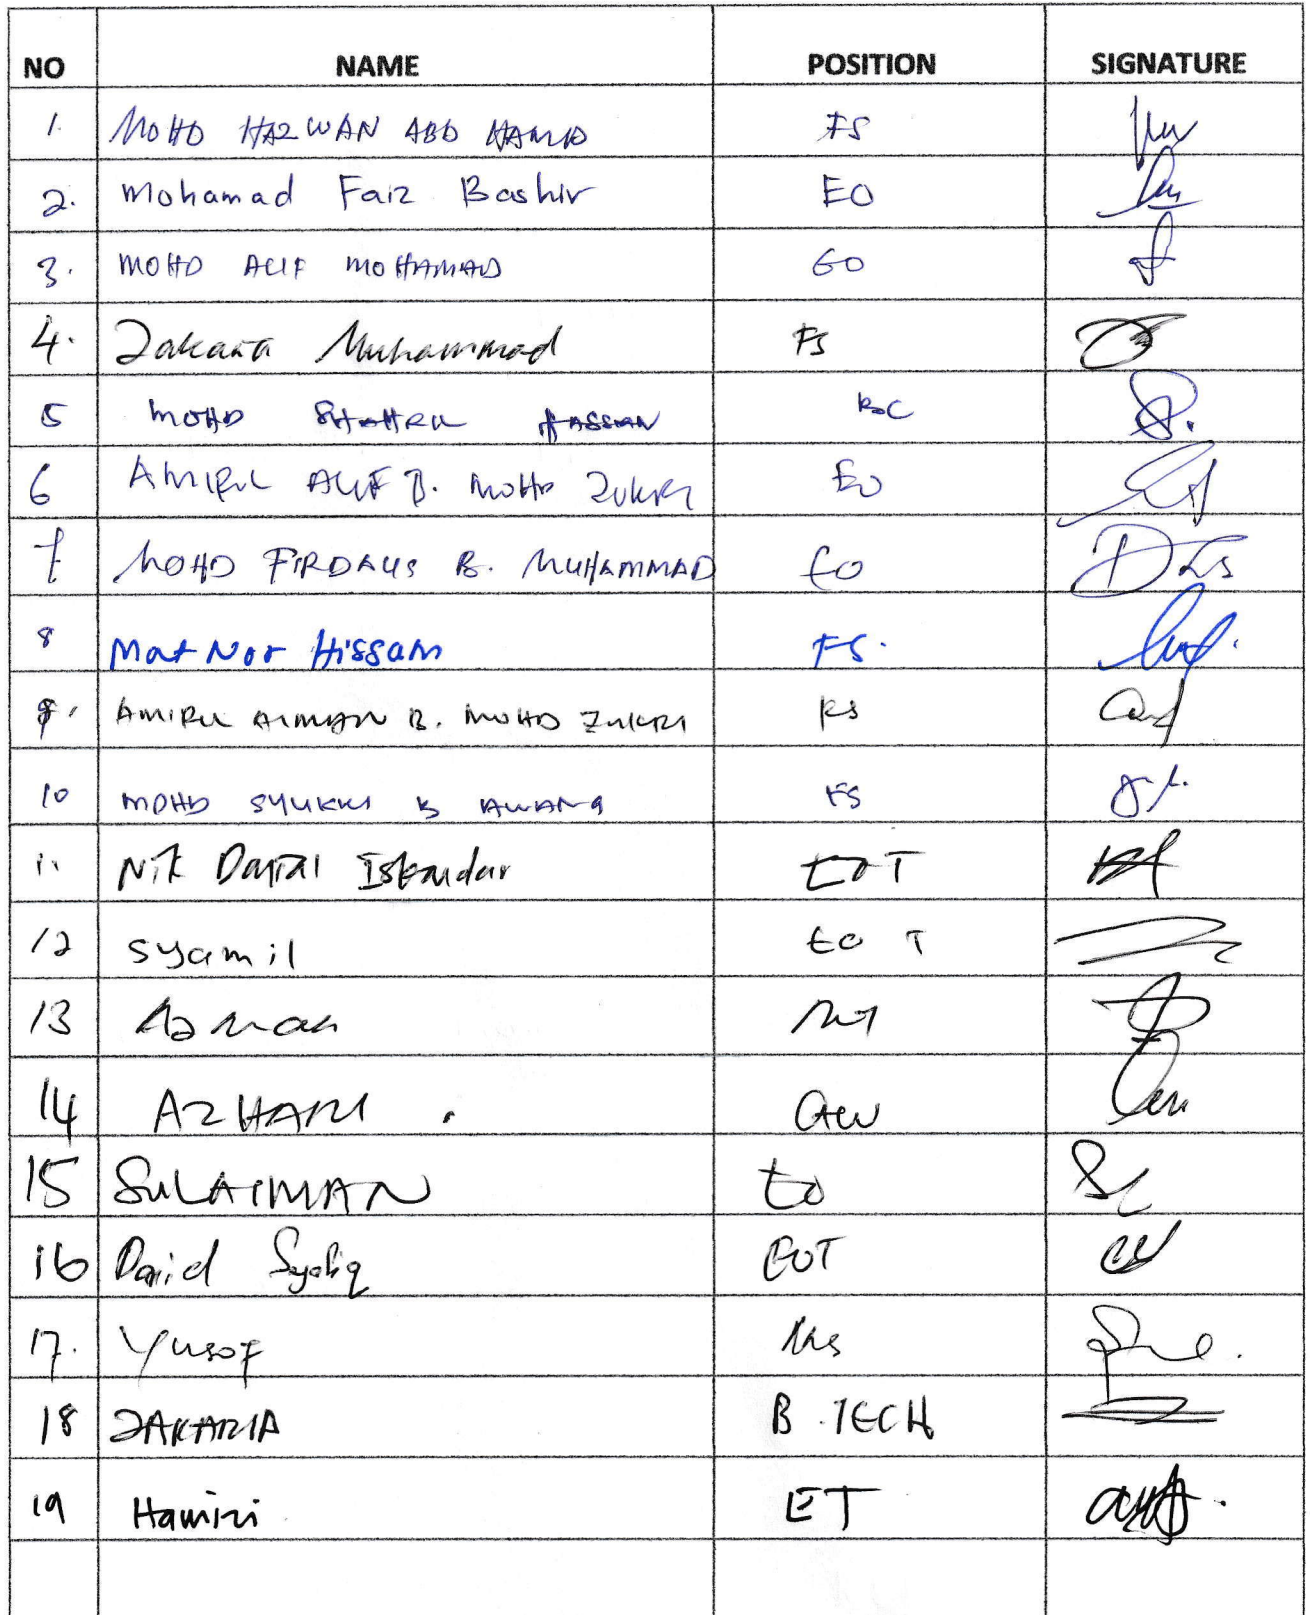 NO NAME POSITION SIGNATURE
1. MOHD HAZWAN ABD HAMID FS
2. Mohamad Faiz Bashir EO
3. MOHD ALIF MOHAMAD EO
4. Zakaria Muhammad FS
5 MOHD SHAHRIL HASSAN
6 AMIRUL ALIF B. MOHD ZUKRI EO
7 MOHD FIRDAUS B. MUHAMMAD EO
8 Mat Nor Hissam FS.
9. AMIRUL AIMAN B. MOHD ZUKRI
10 MOHD SYUKRI B AWANG FS
11 Nik Danial Iskandar EOT
12 Syamil EO T
13 Azman
14 AZHARI .
15 SULAIMAN EO
16 Daniel Syafiq EOT
17. Yusof
18 ZAKARIA B.TECH
19 Hamizi ET